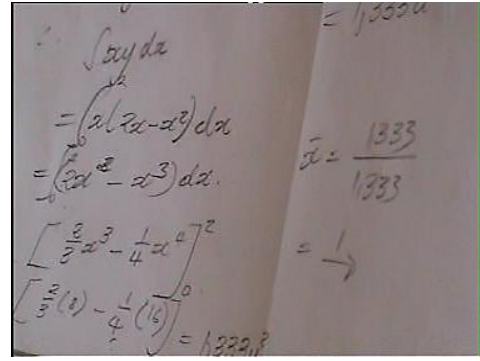 ∫xy dx
= ∫₀² x(2x-x²) dx
= ∫₀² (2x² - x³) dx.
[⅔x³ - ¼x⁴]₀²
[⅔(8) - ¼(16)] = 1,333u³
= 1,333u
x̄ = 1333 / 1,333
= 1